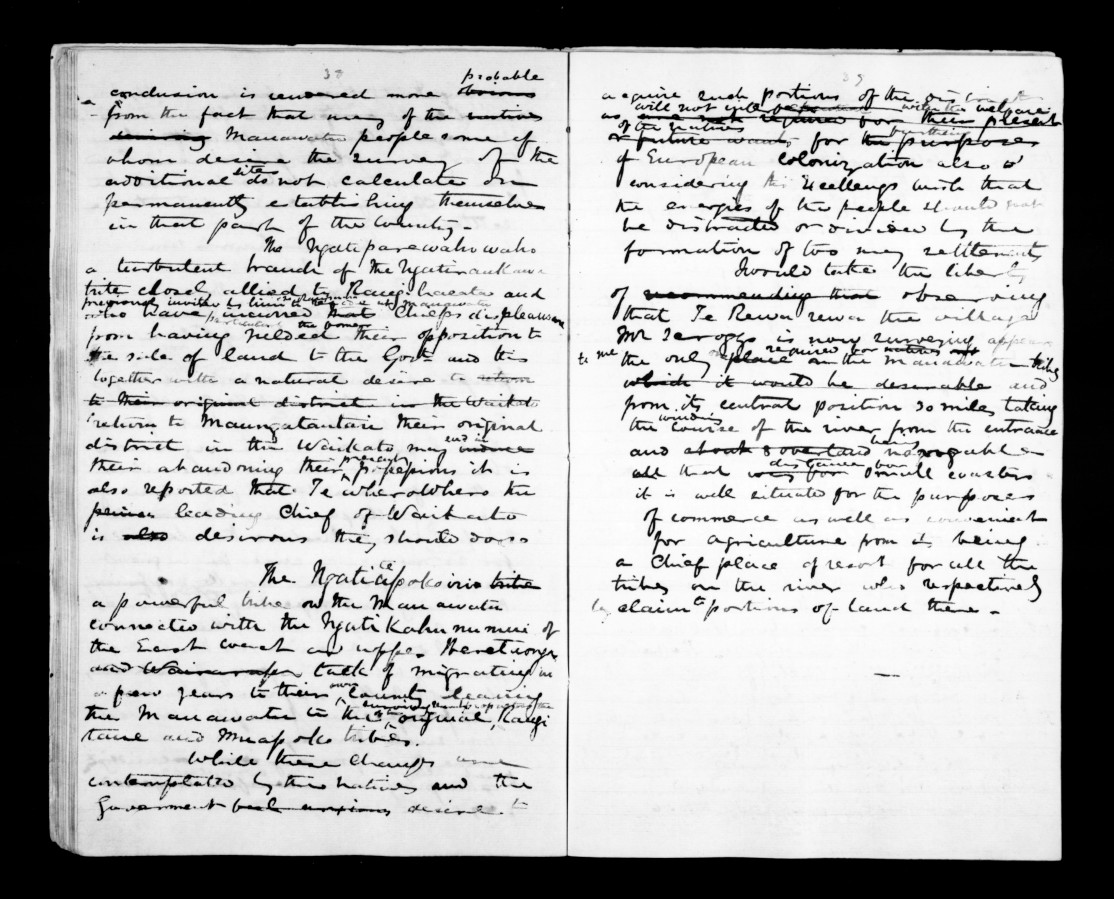 38
probable
conclusion is rendered more obvious
from the fact that many of the natives
desiring Manawatu people some of
whom desire the survey of the
additional site do not calculate on
permanently establishing themselves
in that part of the Country -
The Ngatiparewahowaho
a turbulent branch of the Ngatiraukawa
tribe closely allied to Rangihaeata and
previously invited by him to Manawatu
who have incurred that Chiefs displeasure
from having yielded their opposition to
the sale of land to the Govt and this
together with a natural desire to return
to their original district in the Waikato
return to Maungatautari their original
district in the Waikato may end in induce
their abandoning their present possessions it is
also reported that Te Wherowhero the
leading Chief of Waikato
is also desirous they should do so
The Ngatiapokoiri tribe
a powerful tribe on the Manawatu
connected with the Ngati Kahunumui of
the East coast and upper Heretounga
and Wairarapa talk of migrating in
a few years to their own Country leaving
the Manawatu to the original Rangi
tane and Muapoko tribes.
While these changes are
contemplated by the natives and the
Government desire to
39
acquire such portions of the district
will not with the welfare
as are not required for their present
of the natives
or future wants for the purposes
of European colonization also
considering His Excellencys wish that
the energies of the people should not
be distracted or divided by the
formation of too many settlements
I would take the liberty
of recommending that observing
that Te Rewa rewa the village
Mr Scroggs is now surveying appears
to me the only place required for natives on the Manawatu
which it would be desirable and
from its central position 30 miles taking
the windings course of the river from the entrance
and about 8 overland navigable
all that distance for small coasters
it is well situated for the purposes
of commerce as well as convenient
for agriculture from its being
a Chief place of resort for all the
tribes on the river who respectively
lay claim to portions of land there -